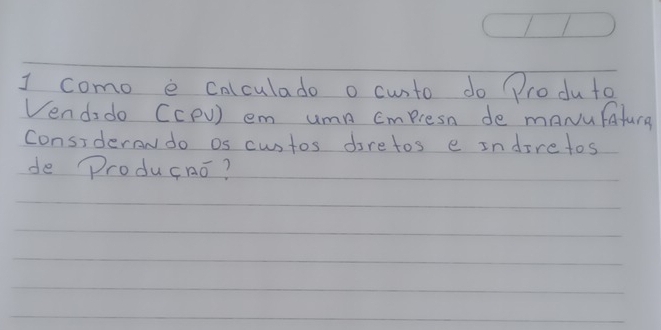 1 Como é calculado o custo do Produto
Vendido (CPV) em uma empresa de manufatura
considerando os custos diretos e indiretos
de Produção?